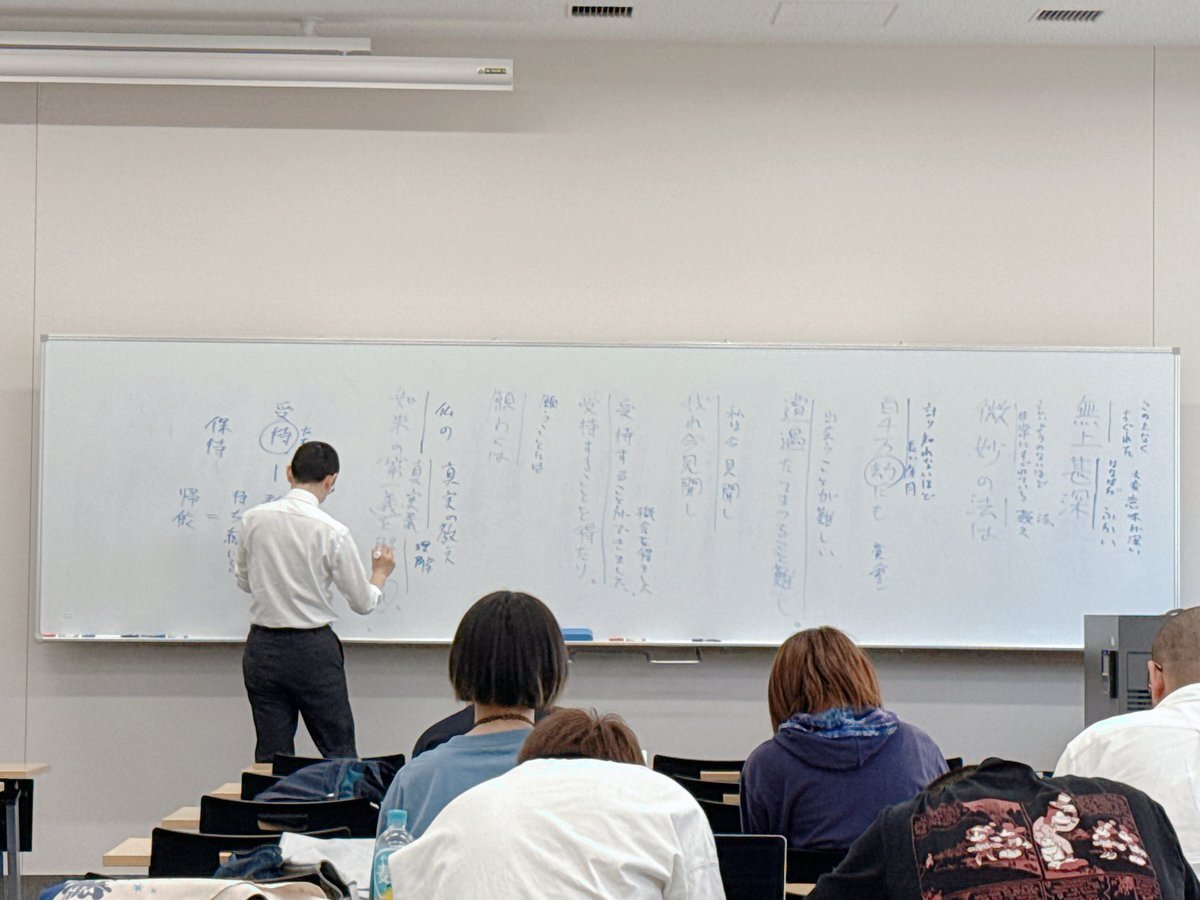 この上なく
すぐれた
大変意味が深い
はなはだ ふかい
無上甚深
いいようのないほど
非常にすぐれている 法、教え
微妙の法は
計り知れないほど
長い年月
百千万劫にも
出会うことが難しい
遭遇たてまつること難し
私は今見聞し
我れ今見聞し
受持することができました。
受持することを得たり。
願うことは
願わくは
仏の 真実の教え
真実義 理解
如来の第一義を
受持
保持
持ち
帰依
=